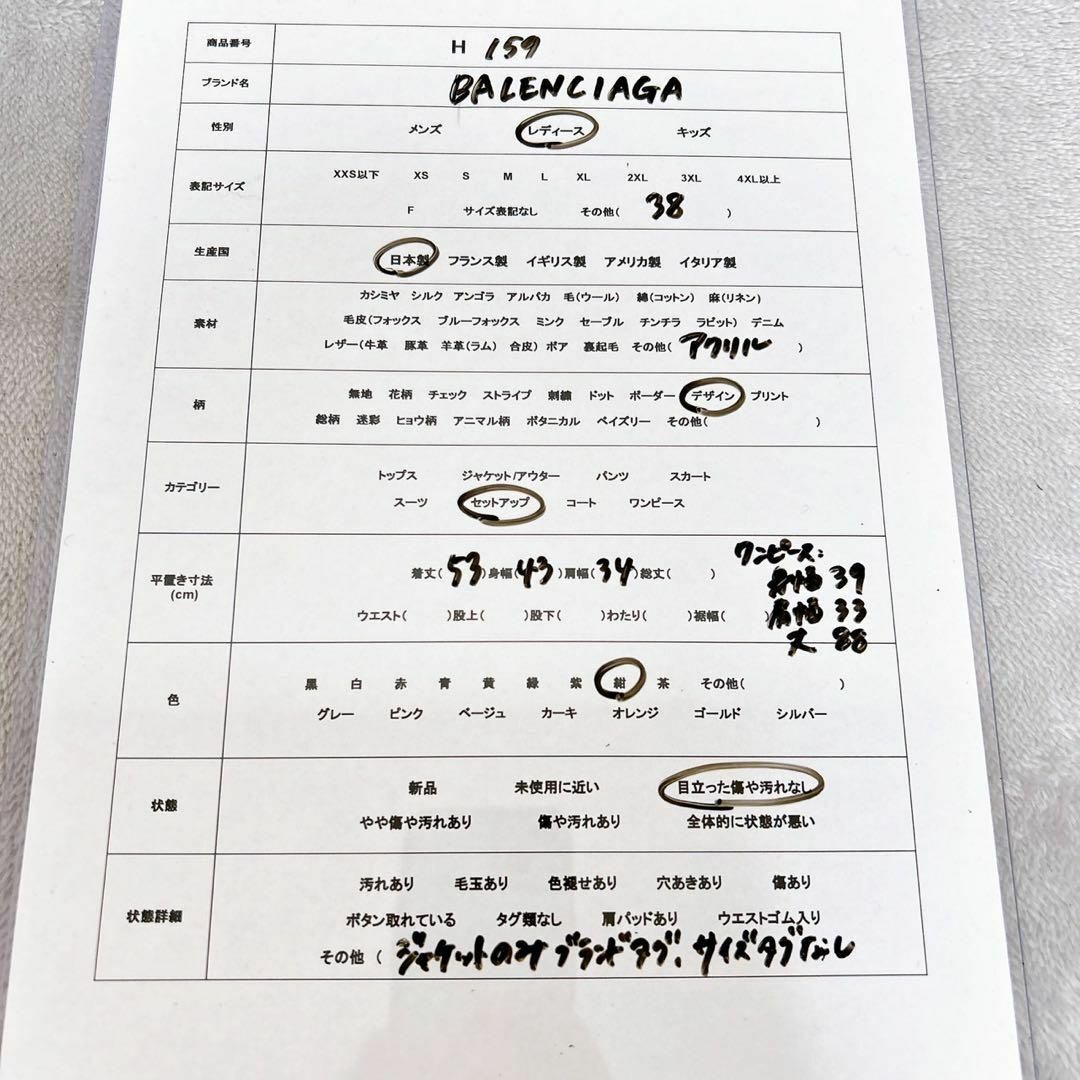 商品番号 H 159
ブランド名 BALENCIAGA
性別 メンズ レディース キッズ
表記サイズ XXS以下 XS S M L XL 2XL 3XL 4XL以上
F サイズ表記なし その他( 38 )
生産国 日本製 フランス製 イギリス製 アメリカ製 イタリア製
素材 カシミヤ シルク アンゴラ アルパカ 毛(ウール) 綿(コットン) 麻(リネン)
毛皮(フォックス ブルーフォックス ミンク セーブル チンチラ ラビット) デニム
レザー(牛革 豚革 羊革(ラム) 合皮) ボア 裏起毛 その他( アクリル )
柄 無地 花柄 チェック ストライプ 刺繍 ドット ボーダー デザイン プリント
総柄 迷彩 ヒョウ柄 アニマル柄 ボタニカル ペイズリー その他( )
カテゴリー トップス ジャケット/アウター パンツ スカート
スーツ セットアップ コート ワンピース
平置き寸法
(cm)
着丈( 53 )身幅( 43 )肩幅( 34 )総丈( )
ウエスト( )股上( )股下( )わたり( )裾幅( )
ワンピース:
身幅 39
肩幅 33
丈 88
色 黒 白 赤 青 黄 緑 紫 紺 茶 その他( )
グレー ピンク ベージュ カーキ オレンジ ゴールド シルバー
状態 新品 未使用に近い 目立った傷や汚れなし
やや傷や汚れあり 傷や汚れあり 全体的に状態が悪い
状態詳細 汚れあり 毛玉あり 色褪せあり 穴あきあり 傷あり
ボタン取れている タグ類なし 肩パッドあり ウエストゴム入り
その他 ( ジャケットのみブランドタグ、サイズタグなし